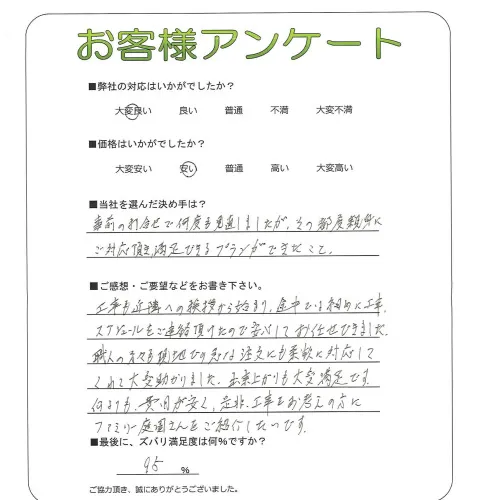 お客様アンケート
■弊社の対応はいかがでしたか？
大変良い 良い 普通 不満 大変不満
■価格はいかがでしたか？
大変安い 安い 普通 高い 大変高い
■当社を選んだ決め手は？
事前の打合せで何度も見直しましたが、その都度親身に
ご対応頂き満足できるプランができたこと。
■ご感想・ご要望などをお書き下さい。
工事も近隣への挨拶から始まり、途中では細めに工事
スケジュールをご連絡頂けたので安心してお任せできました。
職人の方々も現地での急な注文にも柔軟に対応して
くれて大変助かりました。出来上がりも大変満足です。
何よりも、費用が安く、是非、工事をお考えの方に
ファミリー庭園さんをご紹介したいです。
■最後に、ズバリ満足度は何％ですか？
95 %
ご協力頂き、誠にありがとうございました。